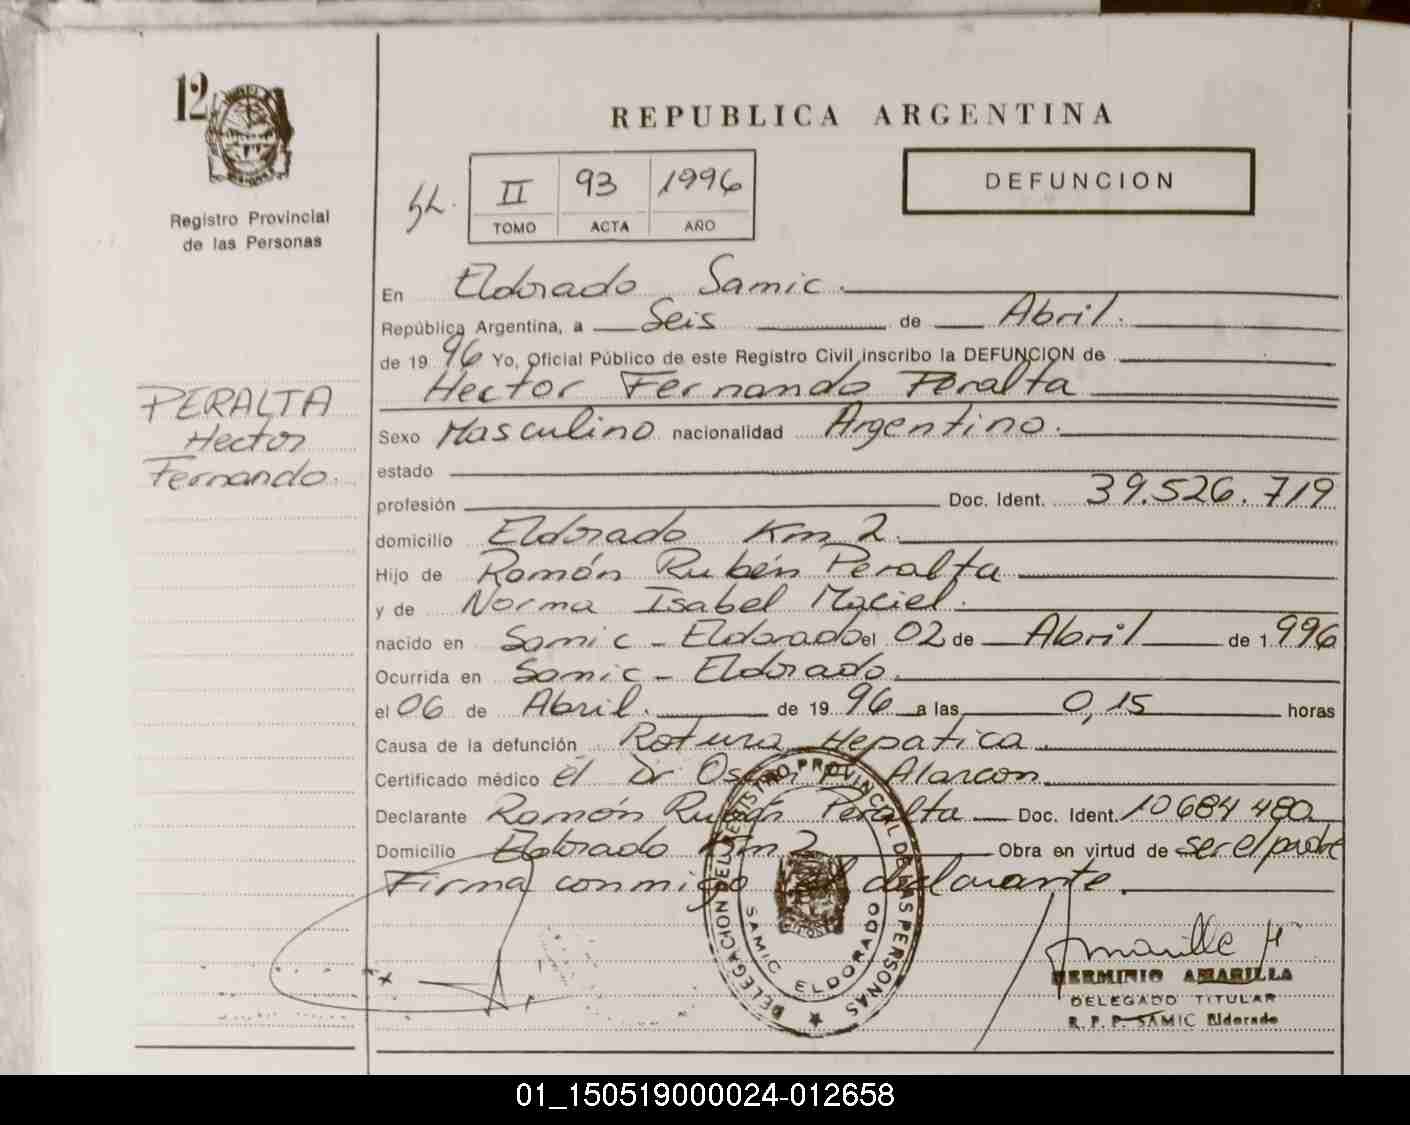 12
Registro Provincial
de las Personas
REPUBLICA ARGENTINA
II 93 1996
TOMO ACTA AÑO
DEFUNCION
En Eldorado Samic.
República Argentina, a Seis de Abril.
de 1996 Yo, Oficial Público de este Registro Civil inscribo la DEFUNCION de
Hector Fernando Peralta
PERALTA
Hector
Fernando.
Sexo Masculino nacionalidad Argentino.
estado
profesión Doc. Ident. 39.526.719
domicilio Eldorado Km 2.
Hijo de Ramón Rubén Peralta
y de Norma Isabel Maciel.
nacido en Samic - Eldorado el 02 de Abril de 1.996
Ocurrida en Samic - Eldorado.
el 06 de Abril. de 1996 a las 0,15 horas
Causa de la defunción Rotura Hepatica.
Certificado médico el Dr Oscar Alarcon.
Declarante Ramón Rubén Peralta Doc. Ident. 10684480
Domicilio Eldorado Km 2 Obra en virtud de ser el padre
Firma conmigo el declarante.
DELEGACION DEL REGISTRO PROVINCIAL DE LAS PERSONAS
SAMIC ELDORADO
Amarilla H
HERMINIO AMARILLA
DELEGADO TITULAR
R. P. P. SAMIC Eldorado
01_150519000024-012658